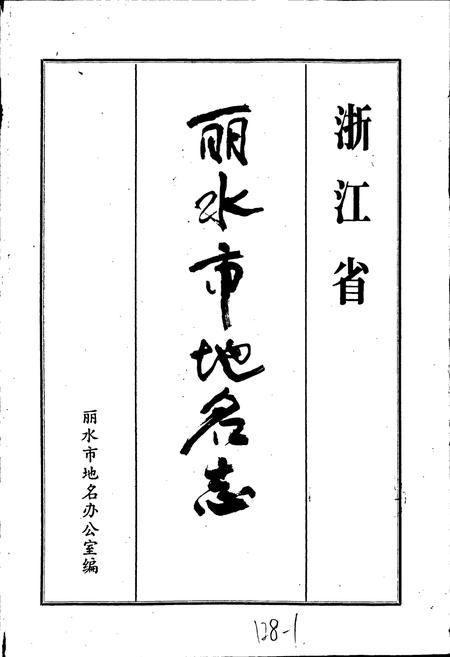 浙江省
丽水市地名志
丽水市地名办公室编
128-1